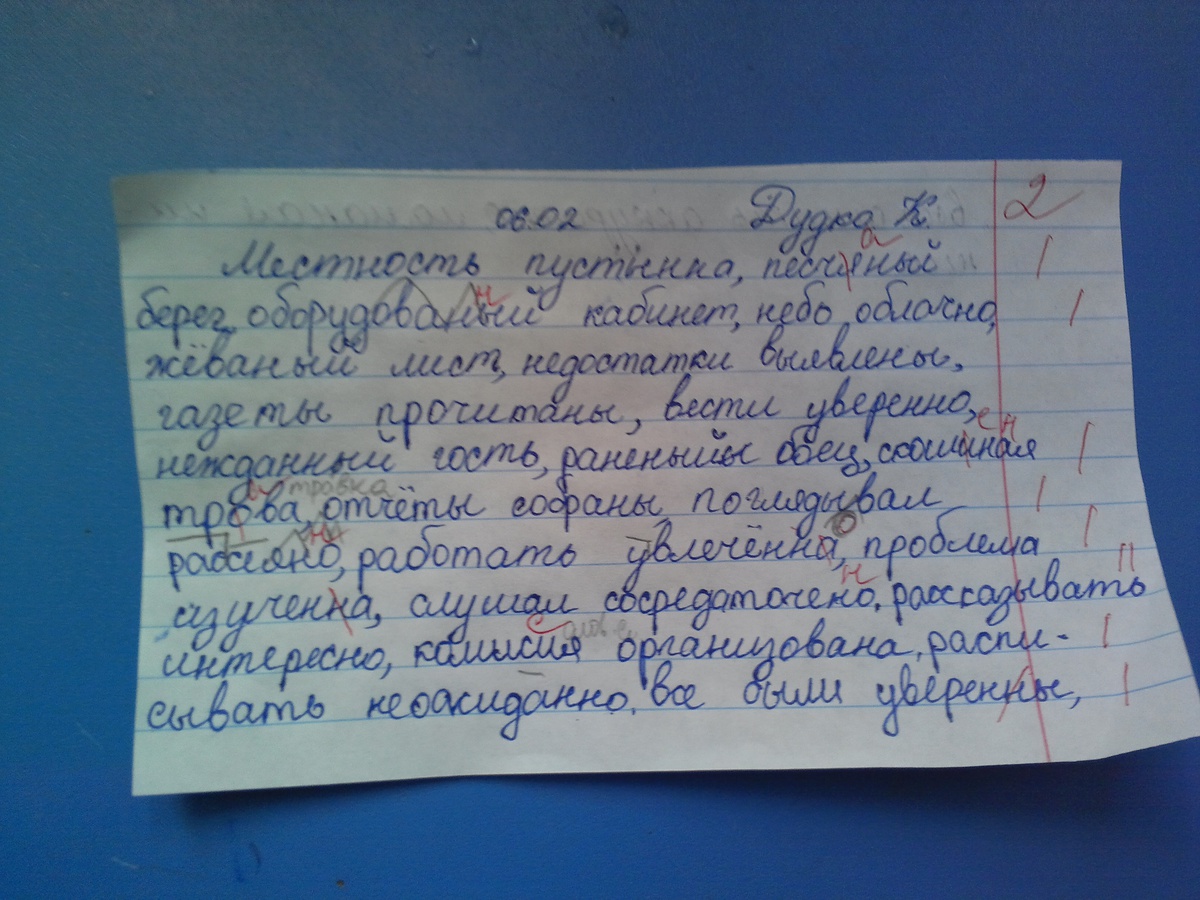 06.02 Дудка К. 2
Местность пустынна, песчяный
берег, оборудованый кабинет, небо облачно,
жёваный лист, недостатки выявлены,
газеты прочитаны, вести уверенно,
нежданный гость, раненый боец, скошиная
трова отчёты собраны поглядывал
рассеяно, работать увлечённо, проблема
изученна, слушал сосредаточено, рассказывать
интересно, комисия организована, распи-
сывать неожиданно, все были уверенны,